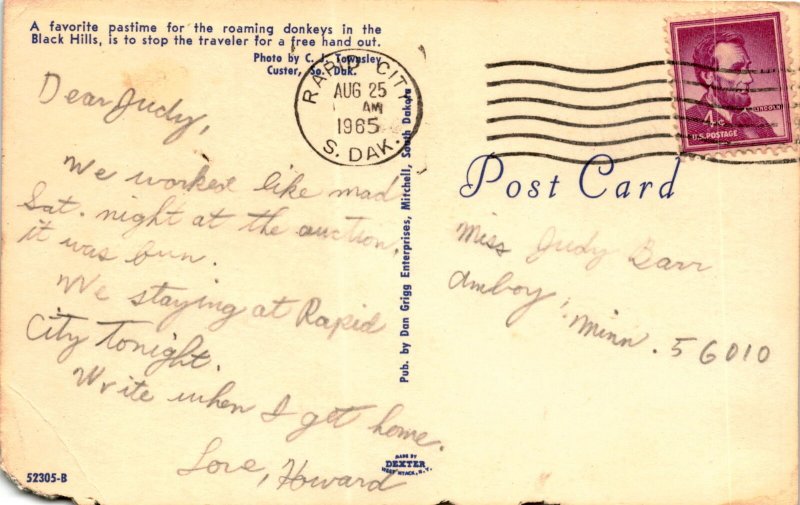 A favorite pastime for the roaming donkeys in the
Black Hills, is to stop the traveler for a free hand out.
Photo by C. J. Townsley
Custer, So. Dak.
RAPID CITY
AUG 25
AM
1965
S. DAK.
4¢
LINCOLN
U.S. POSTAGE
Dear Judy,
We worked like mad
Sat. night at the auction,
it was fun.
We staying at Rapid
City Tonight.
Write when I get home.
Love, Howard
Pub. by Dan Grigg Enterprises, Mitchell, South Dakota
Post Card
Miss Judy Barr
Amboy, Minn. 56010
52305-B
MADE BY
DEXTER
WEST NYACK, N.Y.